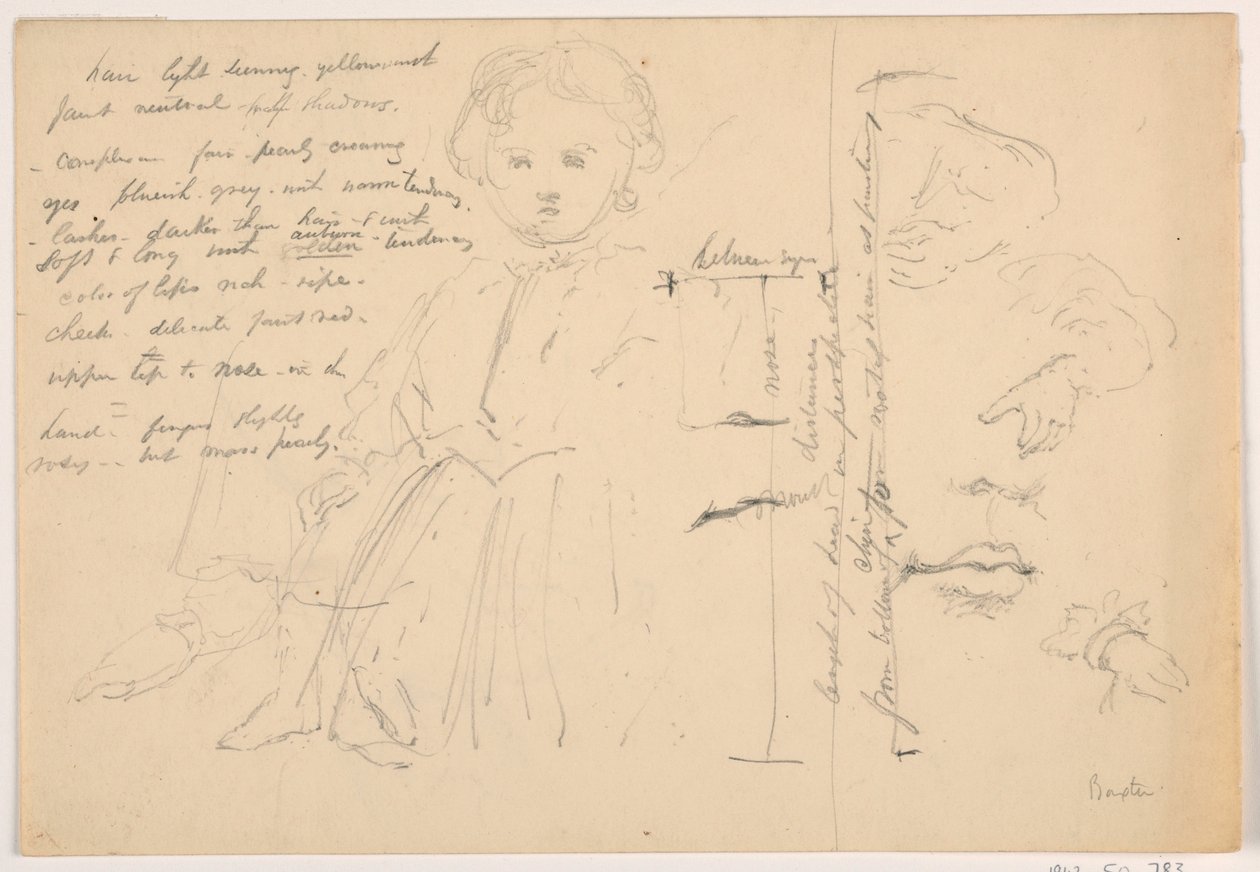 hair light sunny - yellow and
faint neutral half shadows.
- complexion fair - pearly creamy
eyes blueish - grey - with warm tendency.
- lashes - darker than hair - & with
auburn
soft & long with golden - tendency
color of lips rich - ripe -
cheek - delicate faint red -
upper lip to nose -
hand - fingers slightly
rosy -- but mass pearly.
between eyes
nose
mouth
distances
length of head in perspective
chin
from bottom of a from part of hair as painting
Baxter
1942-50-783